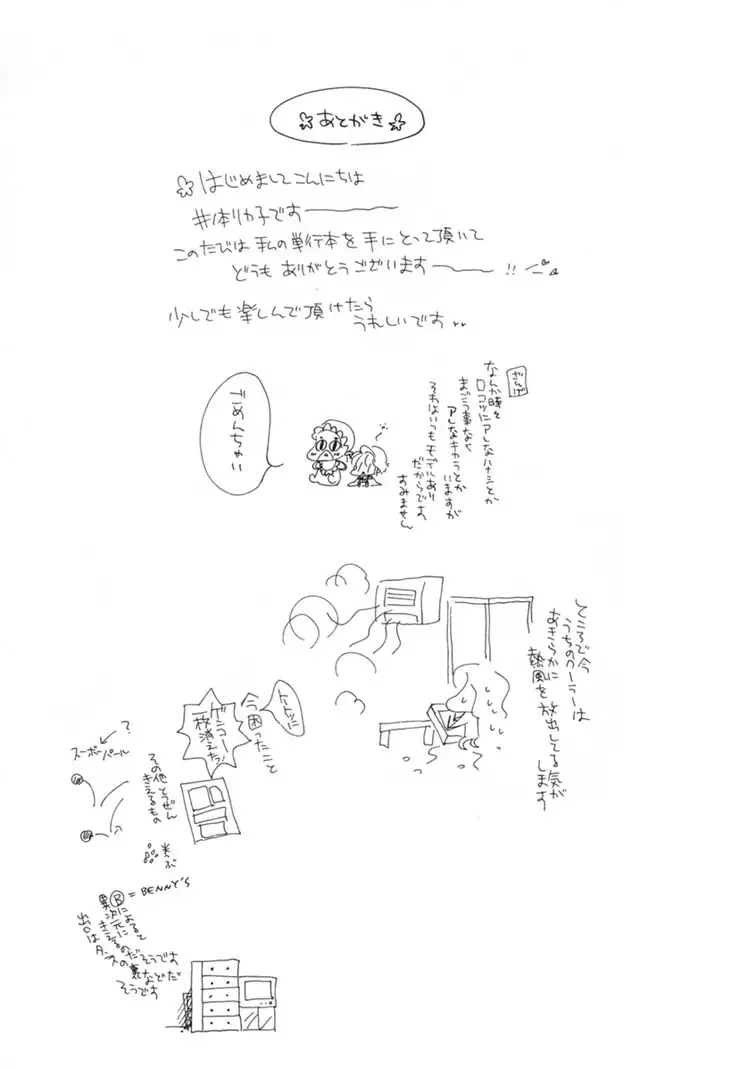 ☆あとがき☆
☆はじめましてこんにちは
井本リカ子です
このたびは私の単行本を手にとって頂いて
どうもありがとうございます
!!
少しでも楽しんで頂けたら
うれしいです
ざんげ
なんか時々
ロコツにアレなハナシとか
まごう事なく
アレなキャラとか
いますが
それはいつもモデルあり
だからです
すみません
ごめんちゃい
ところで今
うちのクーラーは
あきらかに
熱風を放出してる気が
します
トートツに
今困ったこと
ゲンコー
一枚消えたっ!
その他とうぜん
きえるもの
?
スーパーボール
米つぶ
Ⓑ=BENNY'S
Ⓑによると
異次元に
きえるのだそうです
出口は
タンスの裏などだ
そうです